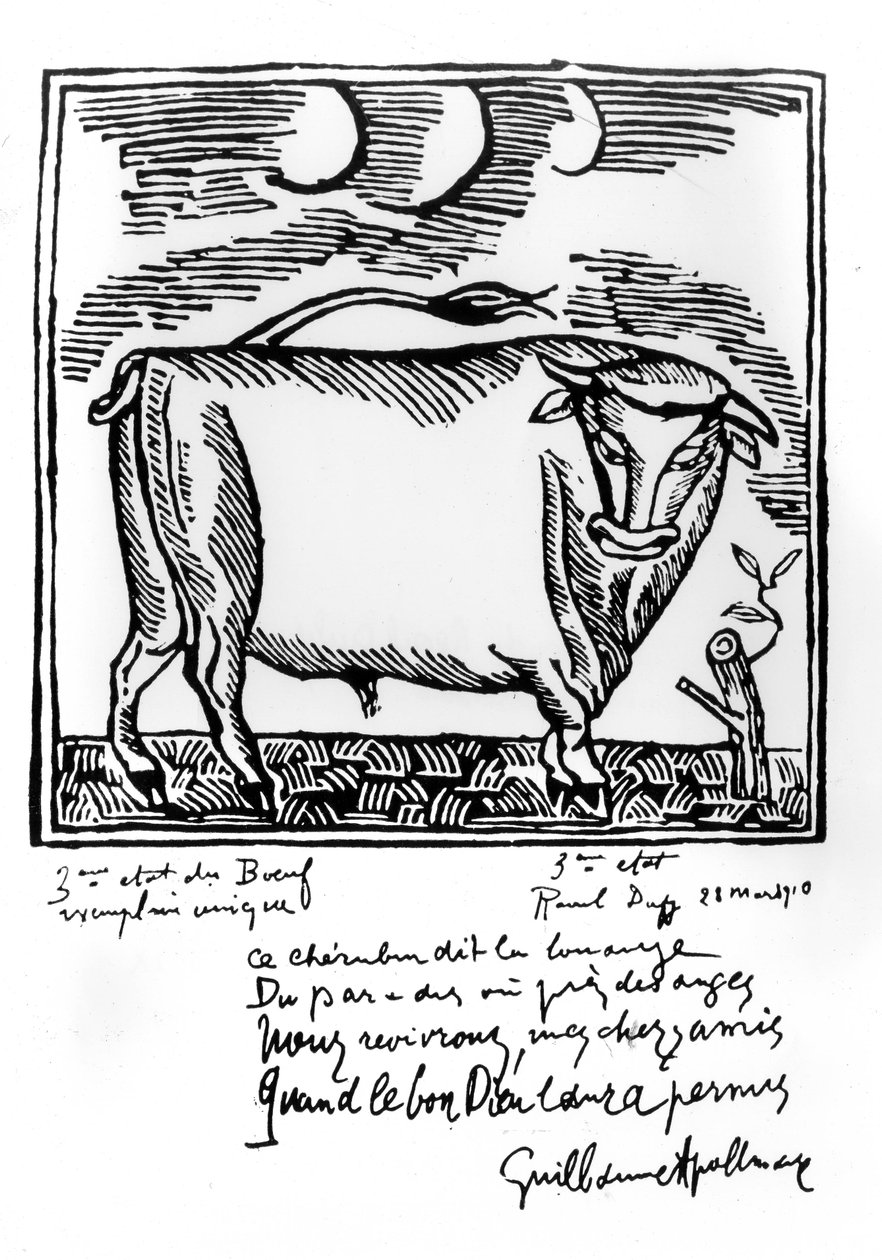 3eme etat du Boeuf
exemplaire unique
3eme etat
Raoul Dufy 28 mars 1910
ce chérubin dit la louange
Du paradis où près des anges
Nous revivrons, mes chers amis
Quand le bon Dieu l'aura permis
Guillaume Apollinaire